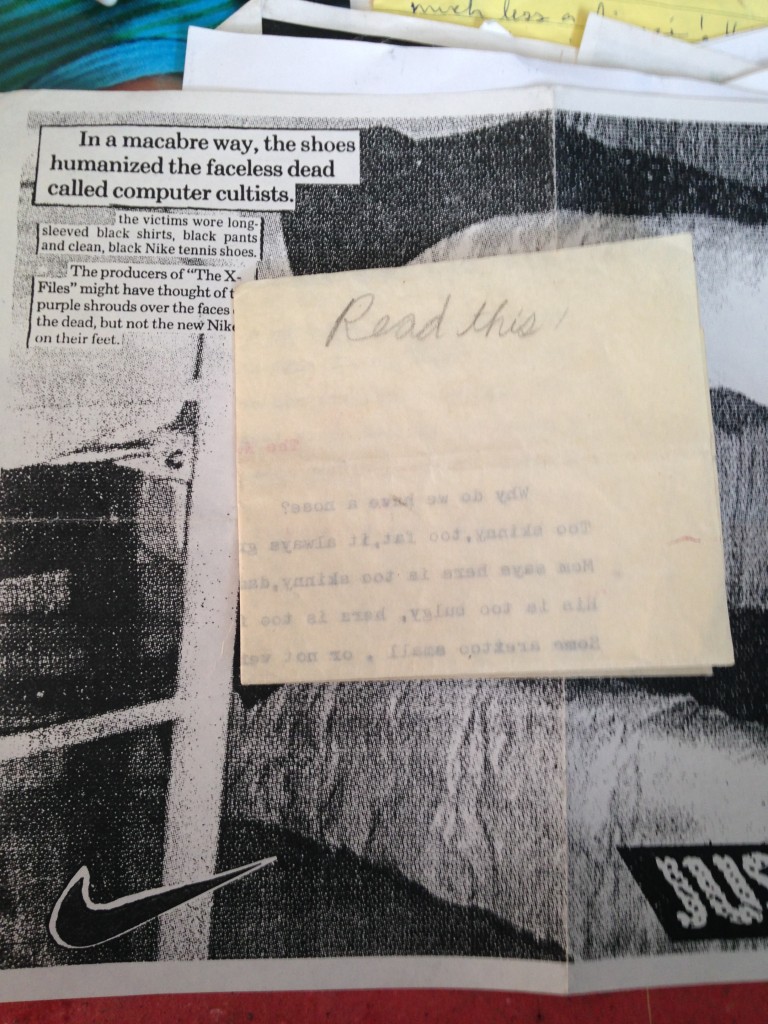 much less a
In a macabre way, the shoes
humanized the faceless dead
called computer cultists.
the victims wore long-
sleeved black shirts, black pants
and clean, black Nike tennis shoes.
The producers of "The X-
Files" might have thought of
purple shrouds over the faces
the dead, but not the new Nike
on their feet.
Read this!
The
Why do we have a nose?
Too skinny,too fat,it always
Mom says hers is too skinny,
His is too bulgy, hers is too
Some are too small , or not
JUS